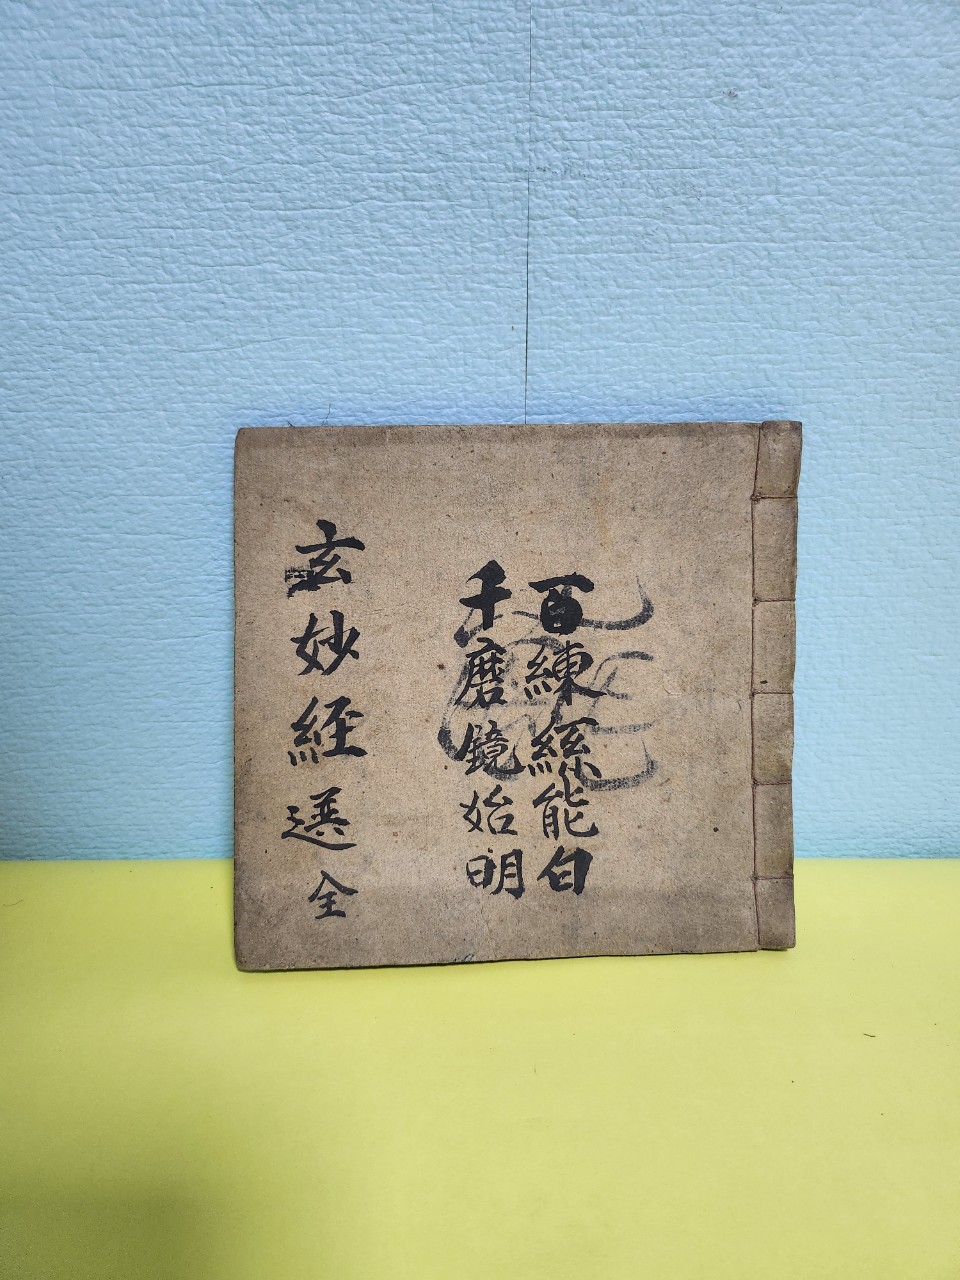 百練絲能白
千磨鏡始明
玄妙經選全